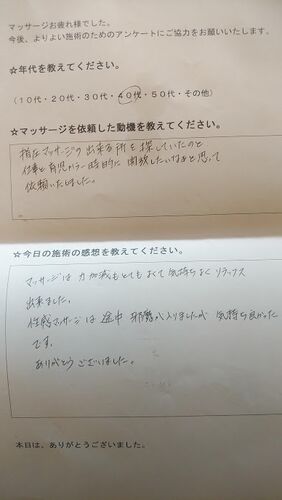 マッサージお疲れ様でした。
今後、よりよい施術のためのアンケートにご協力をお願いいたします。
☆年代を教えてください。
(10代・20代・30代・40代・50代・その他)
☆マッサージを依頼した動機を教えてください。
指圧マッサージの出来る所を探していたのと
仕事と育児から一時的に開放したいなぁと思って
依頼いたしました。
☆今日の施術の感想を教えてください。
マッサージは力加減もとてもよくて気持ちよくリラックス
出来ました。
性感マッサージは途中邪魔が入りましたが気持ち良かった
です。
ありがとうございました。
本日は、ありがとうございました。